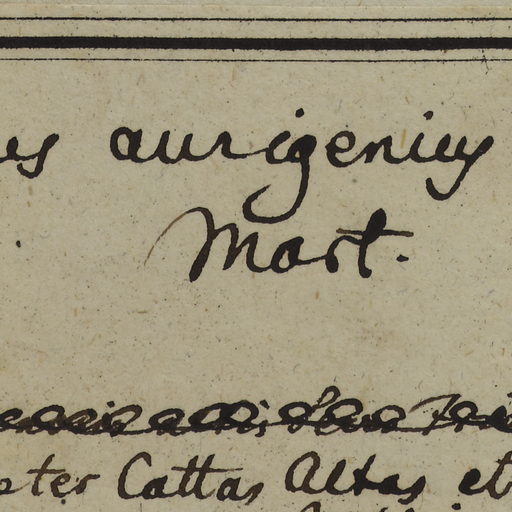 us aurigenius
Mart.
eter Cattas Altas et